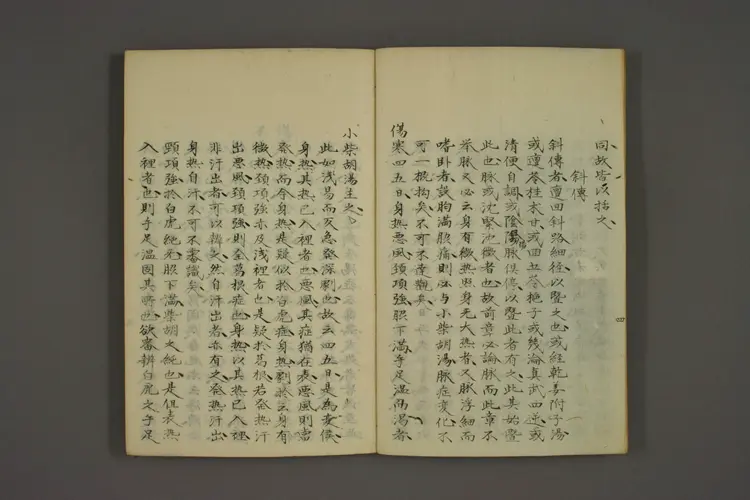 同故皆
斜傳
斜傳者遭回斜路細径以豎之也或経乾姜附子湯
或遭苓桂朮甘或回五苓梔子或幾淪真武四逆或
清便自調或陰陽脉俱停以豎此者有之此其始豎
此也脉或沈緊沈微者也故前章必論脉而此章不
挙脉又必云身有微热無身无大热者又脉浮細而
嗜卧者設胸満脇痛則必与小柴胡湯脉症変化不
可一概拘矣不可不達観矣
傷寒四五日身热悪風頚項強脇下満手足温而渇者
小柴胡湯主之
此如浅易而反急発深劇也故云四五日是為変候
身热其热已入裡者也悪風其症猶在表悪風則当
発热而今身热是疑似於白虎症身热則於云身有
微热頚項強亦及浅裡者也是疑於葛根若発热汗
出悪風頚項強則全葛根症也身热以其热已入裡
非汗出者可以辨矣然自汗出者亦有之発热汗出
身热自汗不可不審識矣
頚項強於白虎絶无脇下満柴胡之純也是但表热
入裡者也則手足温固其所也欲審辨白虎之手足